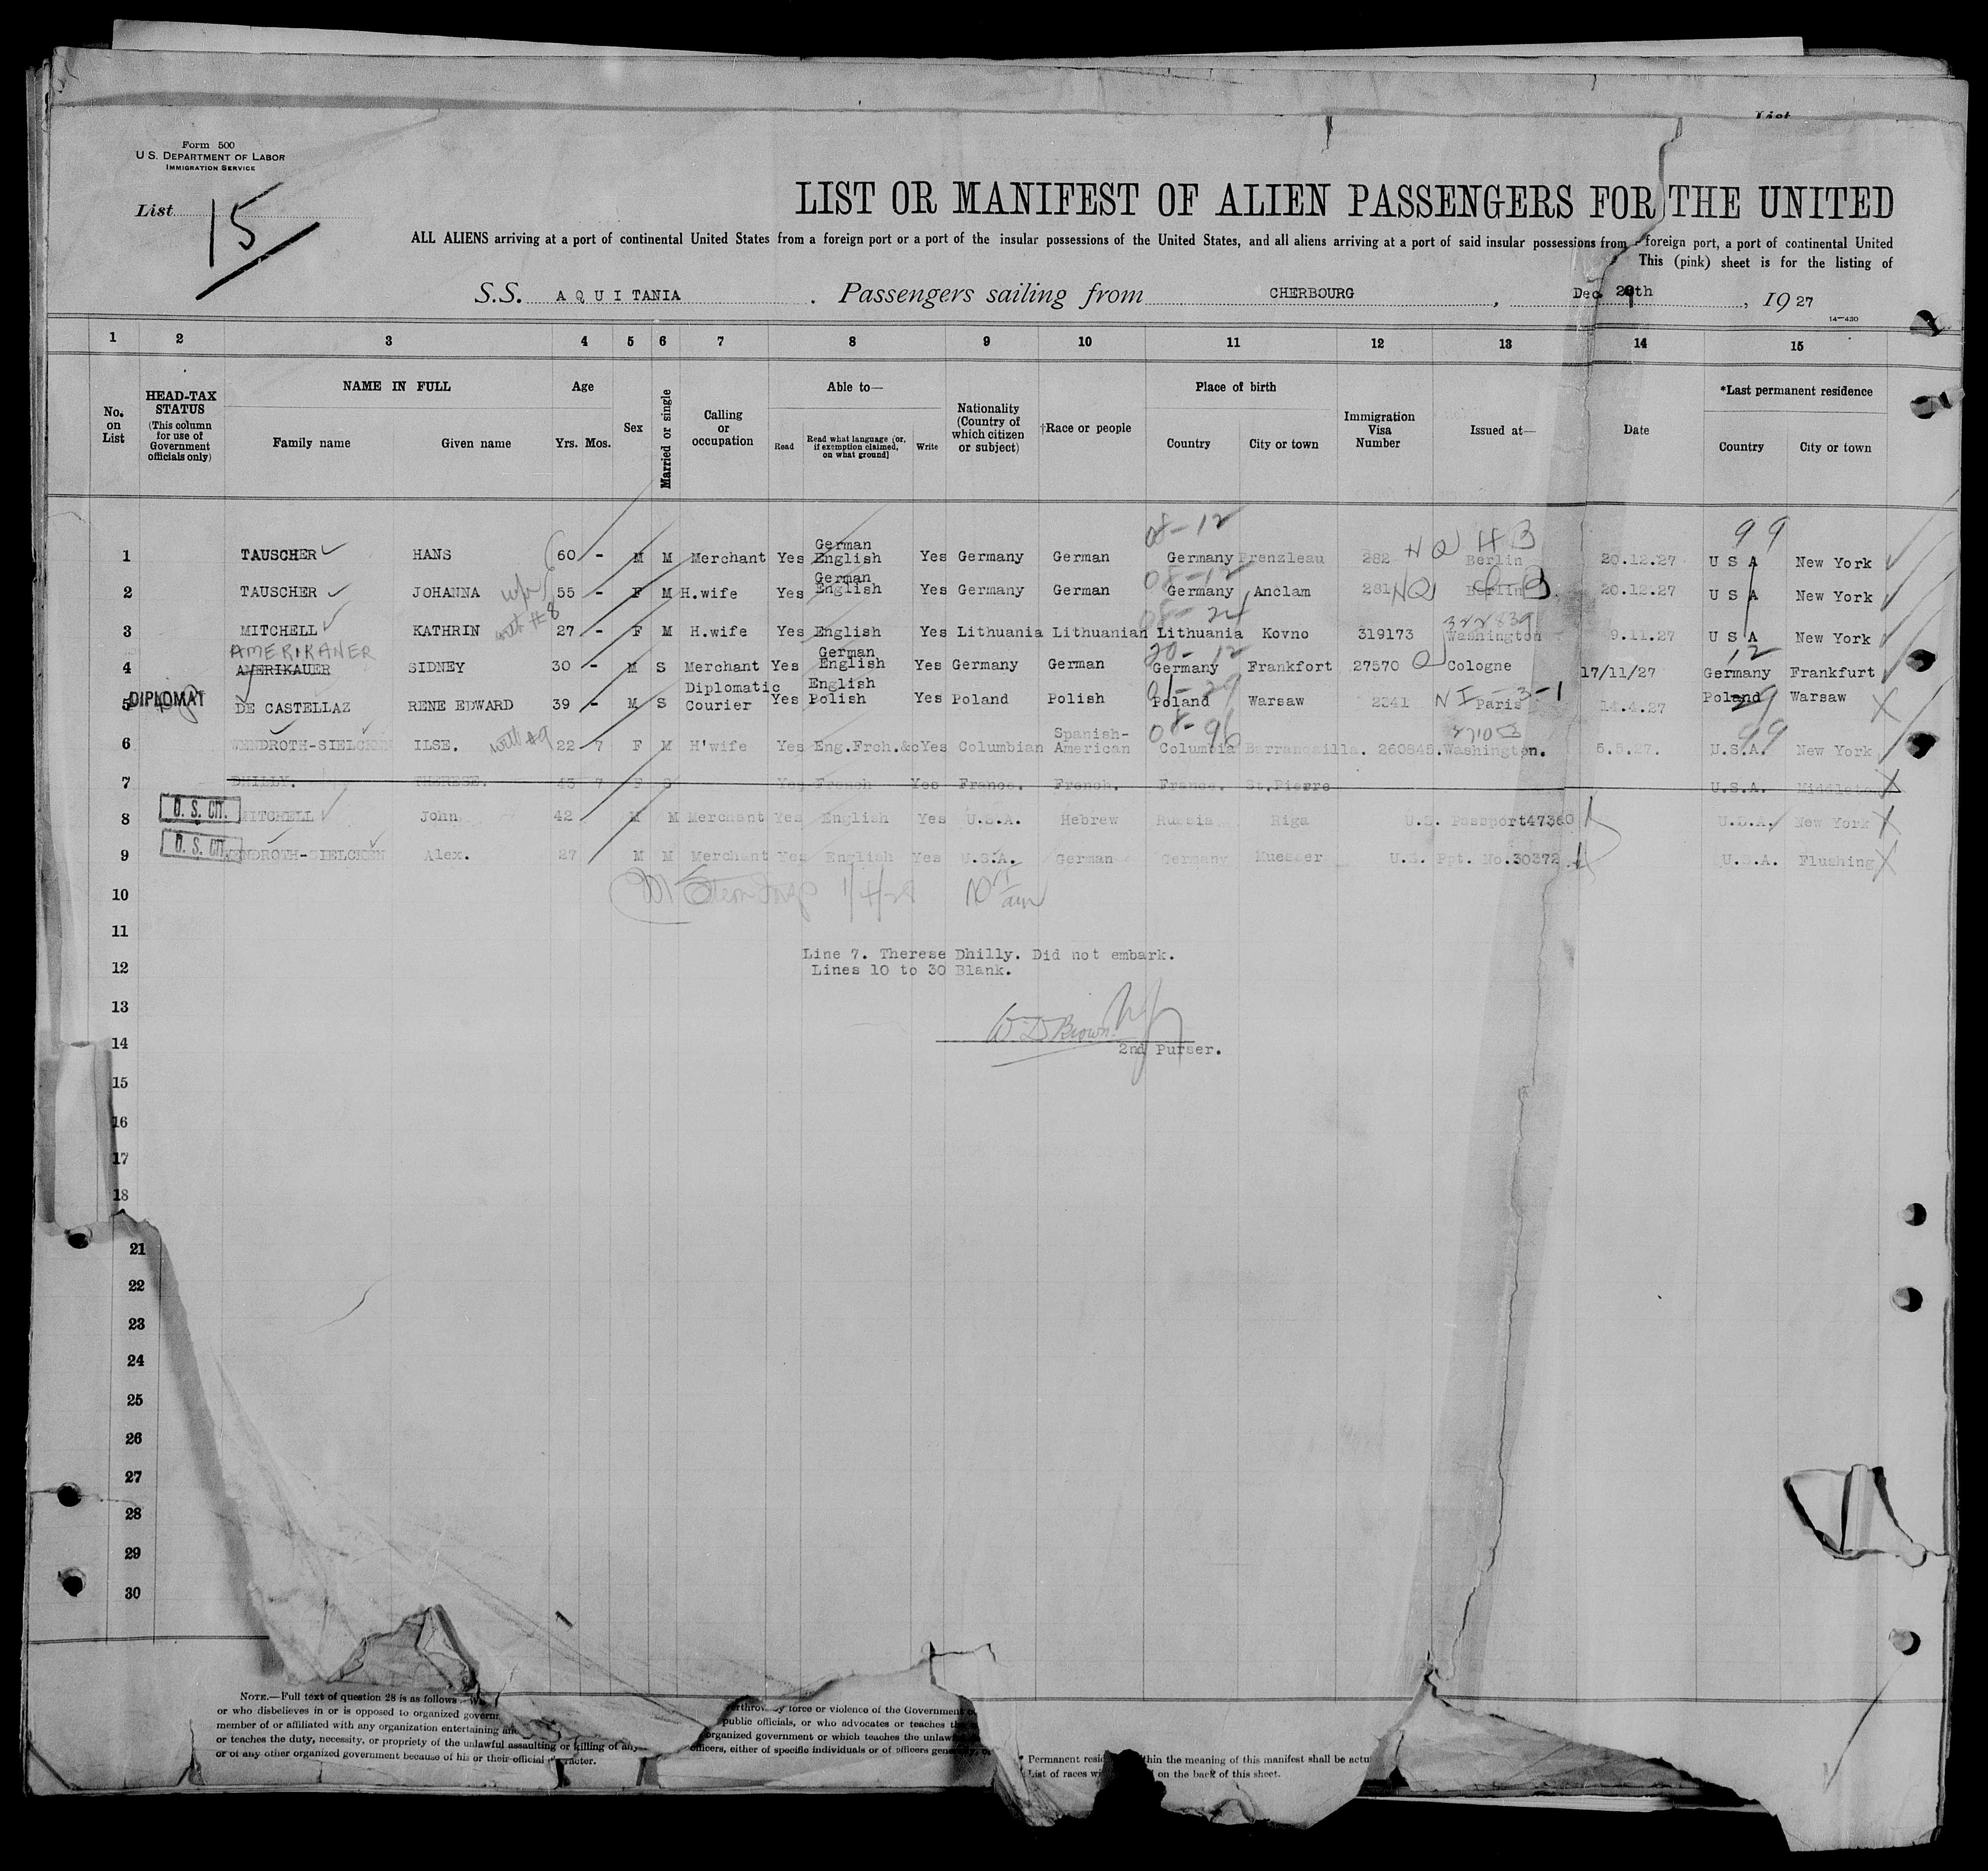 List
Form 500
U.S. DEPARTMENT OF LABOR
IMMIGRATION SERVICE
List 15
LIST OR MANIFEST OF ALIEN PASSENGERS FOR THE UNITED
ALL ALIENS arriving at a port of continental United States from a foreign port or a port of the insular possessions of the United States, and all aliens arriving at a port of said insular possessions from foreign port, a port of continental United
This (pink) sheet is for the listing of
S.S. AQUITANIA . Passengers sailing from CHERBOURG , Dec. th , 1927
14-430
1 2 3 4 5 6 7 8 9 10 11 12 13 14 15
No. on List
HEAD-TAX STATUS (This column for use of Government officials only)
NAME IN FULL
Family name Given name
Age
Yrs. Mos.
Sex
Married or single
Calling or occupation
Able to—
Read
Read what language [or, if exemption claimed, on what ground]
Write
Nationality (Country of which citizen or subject)
†Race or people
Place of birth
Country City or town
Immigration Visa Number
Issued at—
Date
*Last permanent residence
Country City or town
08-12 99
1 TAUSCHER HANS 60 - M M Merchant Yes German English Yes Germany German Germany Prenzleau 282 NQ HB Berlin 20.12.27 U S A New York
08-12
2 TAUSCHER JOHANNA wife 55 - F M H.wife Yes German English Yes Germany German Germany Anclam 281 NQ Berlin. 20.12.27 U S A New York
08-24 322839
3 MITCHELL KATHRIN with #8 27 - F M H.wife Yes English Yes Lithuania Lithuanian Lithuania Kovno 319173 Washington 9.11.27 U S A New York
AMERIKANER
20-12 12
4 AMERIKAUER SIDNEY 30 - M S Merchant Yes German English Yes Germany German Germany Frankfort 27570 Q Cologne 17/11/27 Germany Frankfurt
DIPLOMAT
5 DE CASTELLAZ RENE EDWARD 39 - M S Diplomatic Courier Yes English Polish Yes Poland Polish Poland Warsaw 2341 N I Paris 3-1 14.4.27 Poland Warsaw
08-96 99
6 WENDROTH-SIELCKEN ILSE. with #9 22 7 F M H'wife Yes Eng.Frch.&c Yes Columbian Spanish-American Columbia Barranquilla. 260845. Washington. 5.5.27. U.S.A. New York
7 DHILLY. THERESE. 43 7 F S Yes French Yes France. French. France. St.Pierre U.S.A.
U. S. CIT.
8 MITCHELL John 42 M M Merchant Yes English Yes U.S.A. Hebrew Russia Riga U.S. Passport 47360 U.S.A. New York
U. S. CIT.
9 WENDROTH-SIELCKEN Alex. 27 M M Merchant Yes English Yes U.S.A. German Germany U.S. Ppt. No.30372. U.S.A. Flushing
10 1/4/28 am
11
Line 7. Therese Dhilly. Did not embark.
12 Lines 10 to 30 Blank.
13
W. D Brown
14
2nd Purser.
15
16
17
18
21
22
23
24
25
26
27
28
29
30
NOTE.—Full text of question 28 is as follows
or who disbelieves in or is opposed to organized govern
member of or affiliated with any organization entertaining and
or teaches the duty, necessity, or propriety of the unlawful assaulting or killing of any
or of any other organized government because of his or their official character.
by force or violence of the Government
public officials, or who advocates or teaches
organized government or which teaches the unlaw
officers, either of specific individuals or of officers
* Permanent within the meaning of this manifest shall be actu
List of races on the back of this sheet.